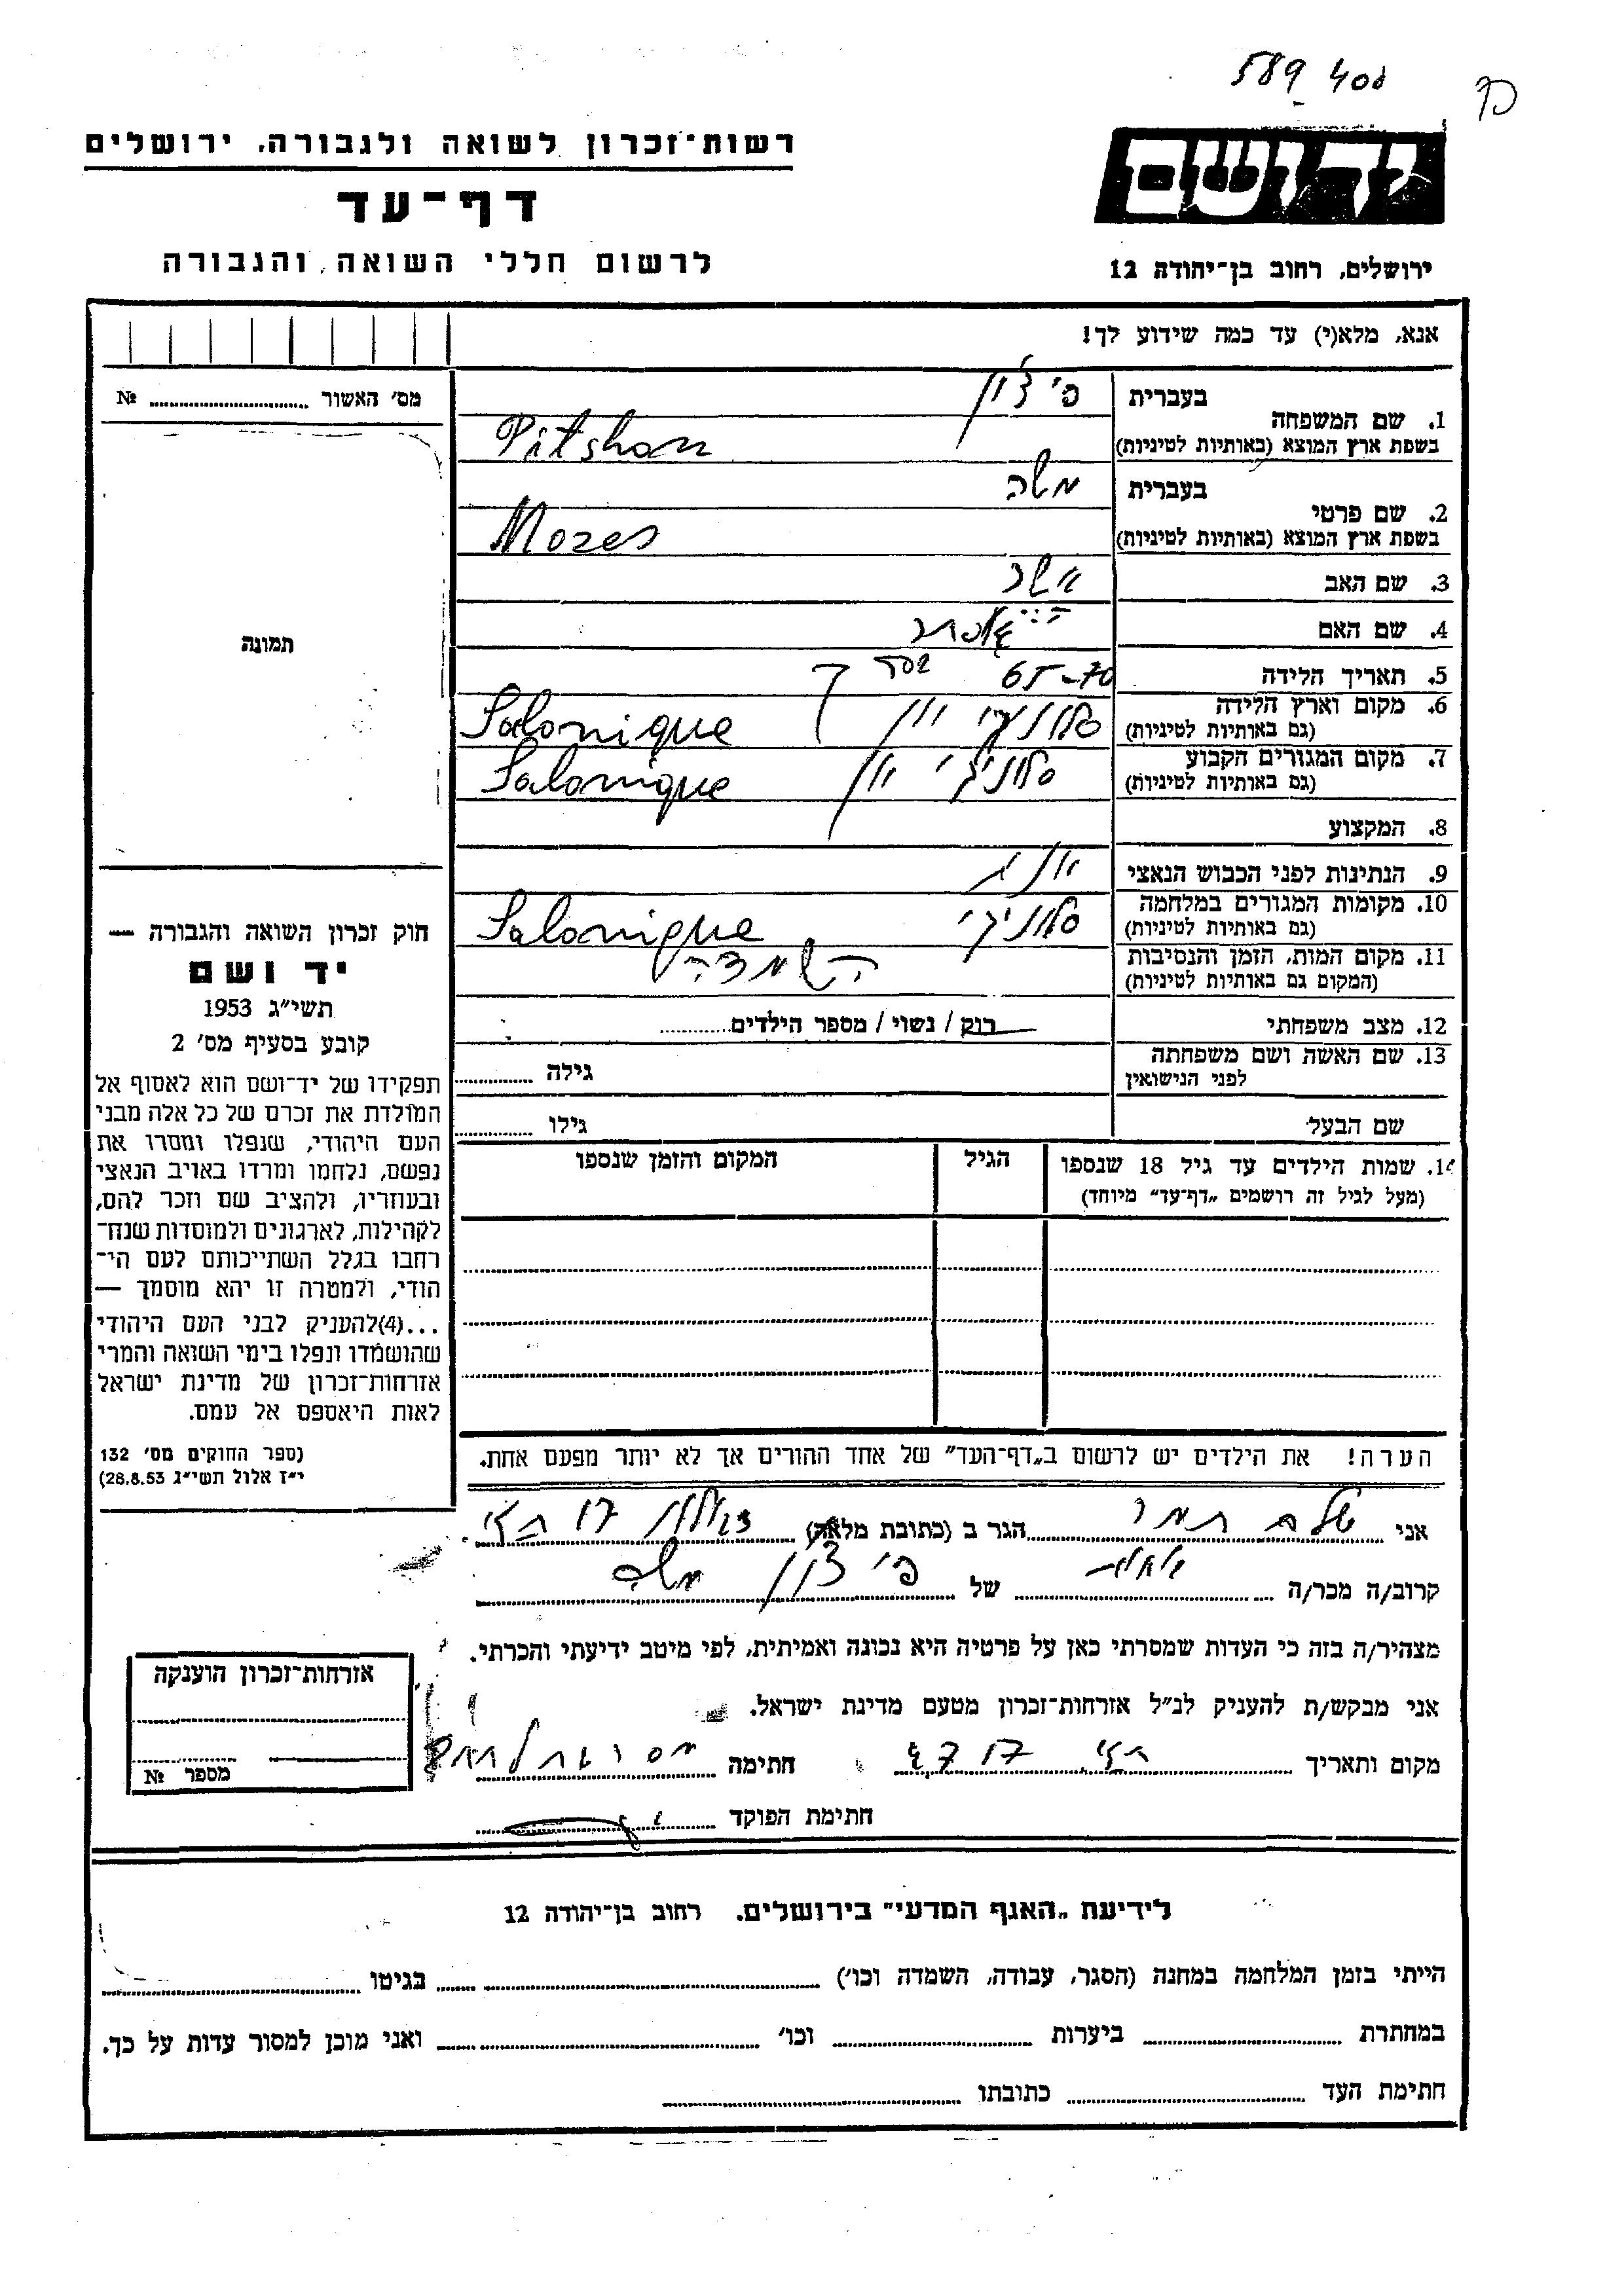 589 400
רשות־זכרון לשואה ולגבורה, ירושלים
יד ושם
דף־עד
לרשום חללי השואה והגבורה
ירושלים, רחוב בן־יהודה 12
אנא, מלא(י) עד כמה שידוע לך!
מס׳ האשור № 
בעברית
1. שם המשפחה
פיצ׳ון
בשפת ארץ המוצא (באותיות לטיניות)
Pitshon
בעברית
2. שם פרטי
משה
בשפת ארץ המוצא (באותיות לטיניות)
Mozes
3. שם האב
אשר
4. שם האם
תמונה
5. תאריך הלידה 65-70
6. מקום וארץ הלידה
(גם באותיות לטיניות)
סלוניקי יוון Salonique
7. מקום המגורים הקבוע
(גם באותיות לטיניות)
סלוניקי יוון Salonique
8. המקצוע
9. הנתינות לפני הכבוש הנאצי
10. מקומות המגורים במלחמה
(גם באותיות לטיניות)
סלוניקי Salonique
11. מקום המות, הזמן והנסיבות
(המקום גם באותיות לטיניות)
השמדה
12. מצב משפחתי רוק / נשוי / מספר הילדים
13. שם האשה ושם משפחתה
לפני הנישואין
גילה
שם הבעל גילו
14. שמות הילדים עד גיל 18 שנספו
(מעל לגיל זה רושמים „דף־עד״ מיוחד)
הגיל
המקום והזמן שנספו
חוק זכרון השואה והגבורה —
יד ושם
תשי״ג 1953
קובע בסעיף מס׳ 2
תפקידו של יד־ושם הוא לאסוף אל
המולדת את זכרם של כל אלה מבני
העם היהודי, שנפלו ומסרו את
נפשם, נלחמו ומרדו באויב הנאצי
ובעוזריו, ולהציב שם וזכר להם,
לקהילות, לארגונים ולמוסדות שנח־
רחבו בגלל השתייכותם לעם הי־
הודי, ולמטרה זו יהא מוסמך —
...(4)להעניק לבני העם היהודי
שהושמדו ונפלו בימי השואה והמרי
אזרחות־זכרון של מדינת ישראל
לאות היאספם אל עמם.
(ספר החוקים מס׳ 132
י״ז אלול תשי״ג 28.8.53)
הערה! את הילדים יש לרשום ב„דף־העד״ של אחד ההורים אך לא יותר מפעם אחת.
אני הגר ב (כתובת מלאה)
קרוב/ה מכר/ה של פיצ׳ון משה
מצהיר/ה בזה כי העדות שמסרתי כאן על פרטיה היא נכונה ואמיתית, לפי מיטב ידיעתי והכרתי.
אני מבקש/ת להעניק לנ״ל אזרחות־זכרון מטעם מדינת ישראל.
מקום ותאריך חתימה
חתימת הפוקד
אזרחות־זכרון הוענקה
מספר №
לידיעת „האגף המדעי״ בירושלים. רחוב בן־יהודה 12
הייתי בזמן המלחמה במחנה (הסגר, עבודה, השמדה וכו׳) בגיטו
במחתרת ביערות וכו׳ ואני מוכן למסור עדות על כך.
חתימת העד כתובתו